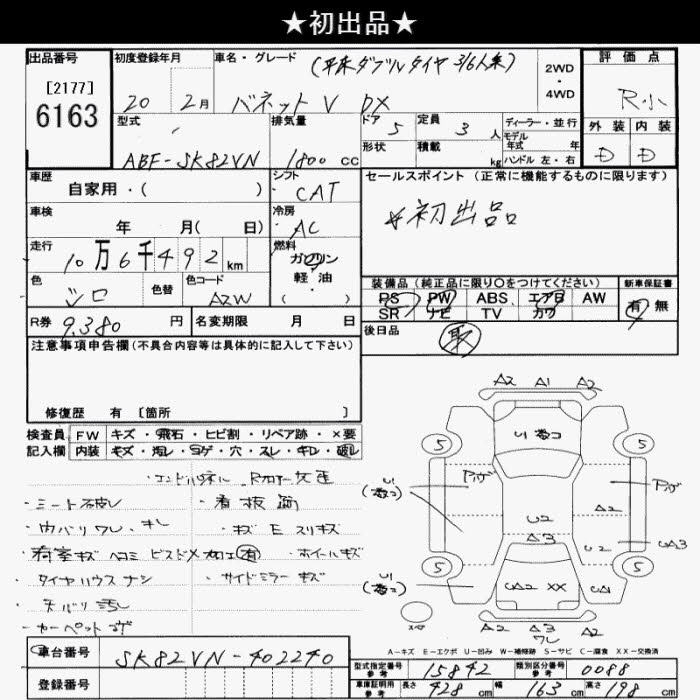 ★初出品★
出品番号
[2177]
6163
初度登録年月
20 2月
車名・グレード
(平床ダブルタイヤ 3/6人乗)
バネットV DX
2WD
・
4WD
評価点
R.小
外装 内装
D D
型式
ABF-SK82VN
排気量
1800 cc
ドア 5
定員 3 人
形状
積載 kg
ディーラー・並行
モデル
年式 年
ハンドル 左・右
車歴
自家用・( )
シフト
CAT
車検
年 月( 日)
冷房
AC
走行
10万6千492 km
燃料
ガソリン
軽油
・
( )
色
シロ
色替
色コード
AZW
R券 9.380 円
名変期限 月 日
セールスポイント (正常に機能するものに限ります)
初出品
装備品 (純正品に限り〇をつけてください)
PS PW ABS エアB AW
SR ナビ TV カワ
新車保証書
有 無
後日品
取
注意事項申告欄 (不具合内容等は具体的に記入して下さい)
修復歴 有 [箇所 ]
検査員
記入欄
FW キズ・飛石・ヒビ割・リペア跡・×要
内装 キズ・汚レ・コゲ・穴・スレ・キレ・破レ
・シート破レ
・看板
・内バリ ワレ、キレ
・キズ E スリキズ
・荷室キズ ヘコミ ビス
有
・ホイールキズ
・タイヤハウス ナシ
・サイドミラー キズ
・天バリ 汚レ
・カーペット
A2 A1 A2
U1
5 5
U1
アゲ アゲ
A2
U2
A3
U2
UA3
5 5
U1
UA2 XX
UA1
スペ
A2 A3 A2
ワレ
A-キズ E-エクボ U-凹み W-補修跡 S-サビ C-腐食 XX-交換済
車台番号 SK82VN-402240
登録番号
型式指定番号
参考
15842
類別区分番号
参考
0088
車庫証明用
参考
長さ 428 cm 幅 163 cm 高さ 198 cm